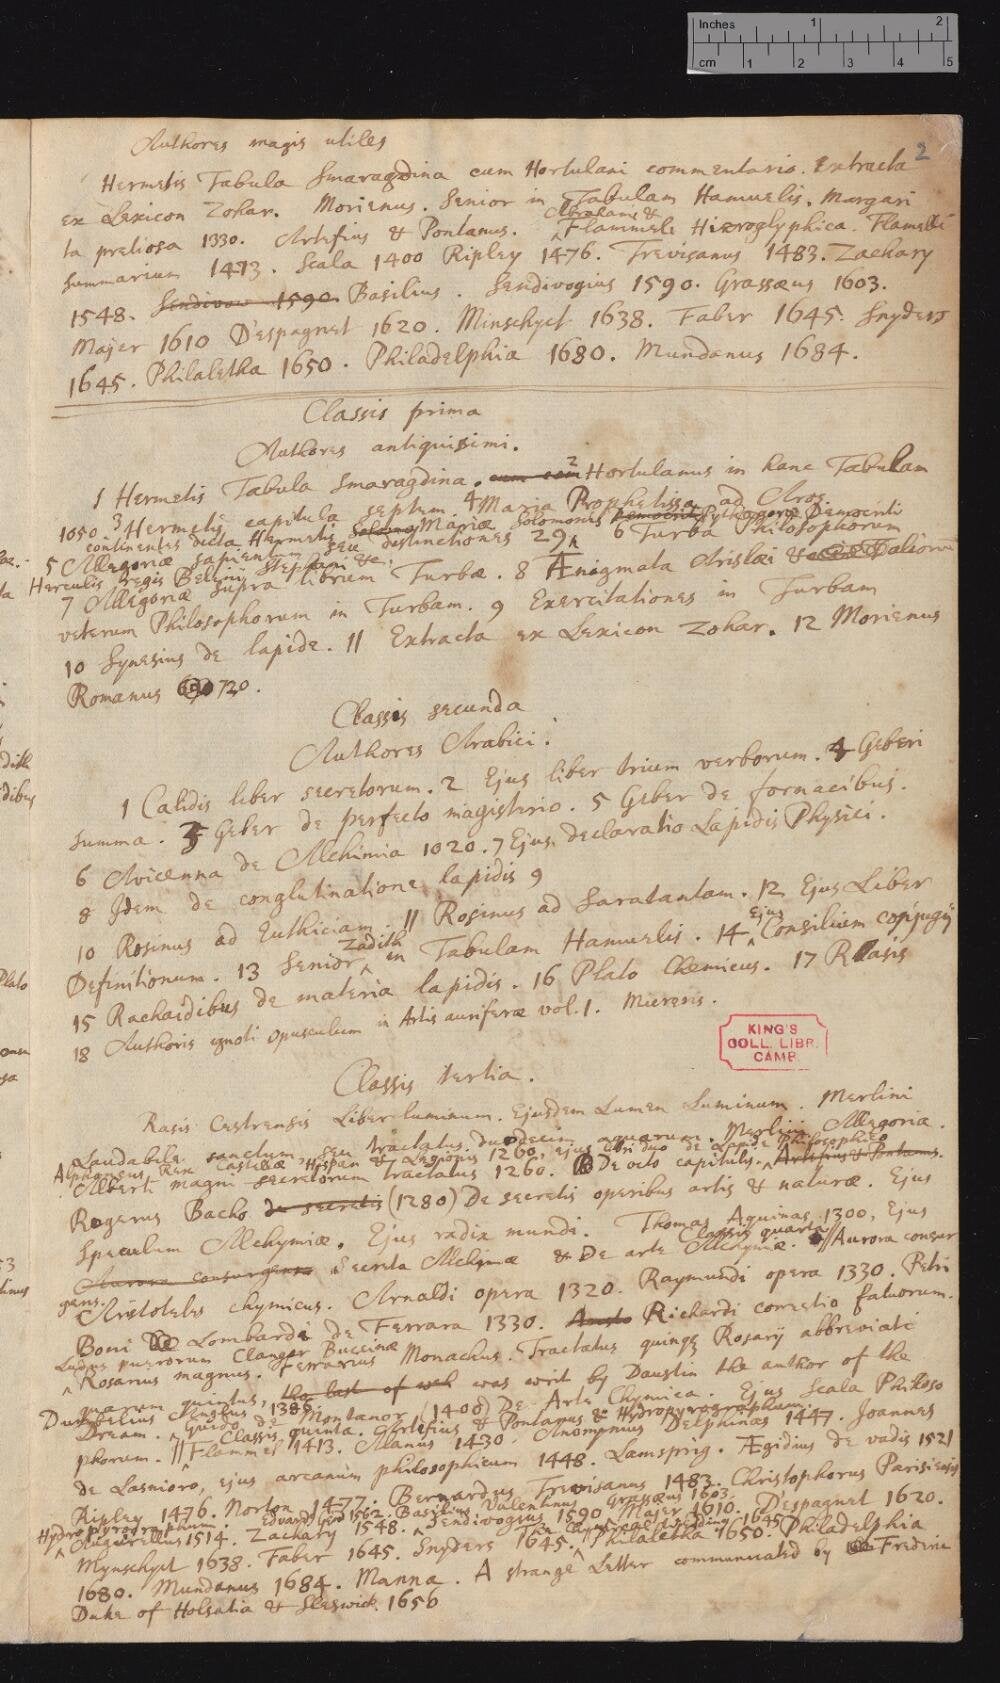 Inches 1 2
cm 1 2 3 4 5
2
Authores magis utiles
Hermetis Tabula Smaragdina cum Hortulani commentario. Extracta
ex Lexicon Zohar. Morienus. Senior in Tabulam Hamuelis. Margari
Abrahami &
ta pretiosa 1330. Artefius & Pontanus. Flammeli Hieroglyphica. Flamelli
Summarium 1413. Scala 1400 Ripley 1476. Trevisanus 1483. Zachary
1548. Sendivow 1590. Basilius. Sendivogius 1590. Grassæus 1603.
Majer 1610 D'espagnet 1620. Minschyct 1638. Faber 1645. Snyders
1645. Philaletha 1650. Philadelphia 1680. Mundanus 1684.
Classis prima
Authores antiquissimi.
1 Hermetis Tabula Smaragdina. 2 Hortulanus in hanc Tabulam
1050 3 Hermetis capitula septem 4 Maria Prophetissa ad Aros.
continentes dicta Hermetis Mariæ Solomonis Democrit Pythagoræ Democriti
5 Allegoriæ sapientum seu distinctiones 29 6 Turba Philosophorum
Herculis regis Bellini Stephani &c.
7 Allegoriæ supra librum Turbæ. 8 Ænigmata Arislæi & aliorū
veterum Philosophorum in Turbam. 9 Exercitationes in Turbam
10 Synesius de lapide. 11 Extracta ex Lexicon Zohar. 12 Morienus
Romanus 720.
Classis secunda
Authores Arabici.
1 Calidis liber secretorum. 2 Ejus liber trium verborum. 4 Geberi
summa. 3 Geber de perfecto magisterio. 5 Geber de fornacibus.
6 Avicenna de Alchimia 1020. 7 Ejus declaratio Lapidis Physici.
8 Idem de conglutinatione lapidis 9
10 Rosinus ad Euthiciam. 11 Rosinus ad Saratantam. 12 Ejus Liber
Zadith Ejus
Definitionum. 13 Senior in Tabulam Hamuelis. 14 Consilium conjugij
15 Rachaidibus de materia lapidis. 16 Plato Chemicus. 17 Rasis
18 Authoris ignoti opusculum in Artis auriferæ vol. 1. Miereris.
KING'S
COLL. LIBR.
CAMB.
Classis tertia.
Rasis Cestrensis Liber luminum. Ejusdem Lumen Luminum. Merlini
Laudabile sanctum, seu tractatus duodecim aquarum. Merlini Allegoria.
Alphonsus Rex Castellæ Hispan & Legionis 1260, ejus libri duo de Lapide Philosophico
Alberti magni secretorum tractatus 1260. De octo capitulis. Artefius & Pontanus.
Rogerus Bacho de secretis (1280) De secretis operibus artis & naturæ. Ejus
Speculum Alchymiæ. Ejus radix mundi. Thomas Aquinas 1300, Ejus
Classis quarta
Aurora consurgens Secreta Alchymiæ & De arte Alchymiæ. // Aurora consur
gens. Aristoteles chymicus. Arnaldi opera 1320. Raymundi opera 1330. Petri
Boni Lombardi de Ferrara 1330. Richardi correctio fatuorum.
Ludus puerorum Clangor Buccinæ
Rosarius magnus. Ferrarius Monachus. Tractatus quinqȝ Rosarij abbreviati
quorum quintus, the last of wch was writ by Daustin the author of the
Dumbelius Anglus 1386
Dream. Guido de Montanor (1400) De Arte Chymica. Ejus Scala Philoso
Classis quinta. Artefius & Pontanus & Hydropyrographum
phorum. // Flammel 1413. Alanus 1430 Anonymus Delphinas 1447. Joannes
de Lasnioro, ejus arcanum philosophicum 1448. Lamsprig. Ægidius de vadis 1521
Ripley 1476. Norton 1477. Bernardus Trevisanus 1483. Christophorus Parisiensis
Hydropyrographum. Edvard 1562. Basilius Valentinus Grassæus 1603.
Augurellus 1514. Zachary 1548. Sendivogius 1590 Majer 1610. D'espagnet 1620.
1645
Mynschyct 1638. Faber 1645. Snyders 1645. Philaletha 1650. Philadelphia
1680. Mundanus 1684. Manna. A strange Letter communicated by Frederic
Duke of Holsatia & Sleswick. 1656